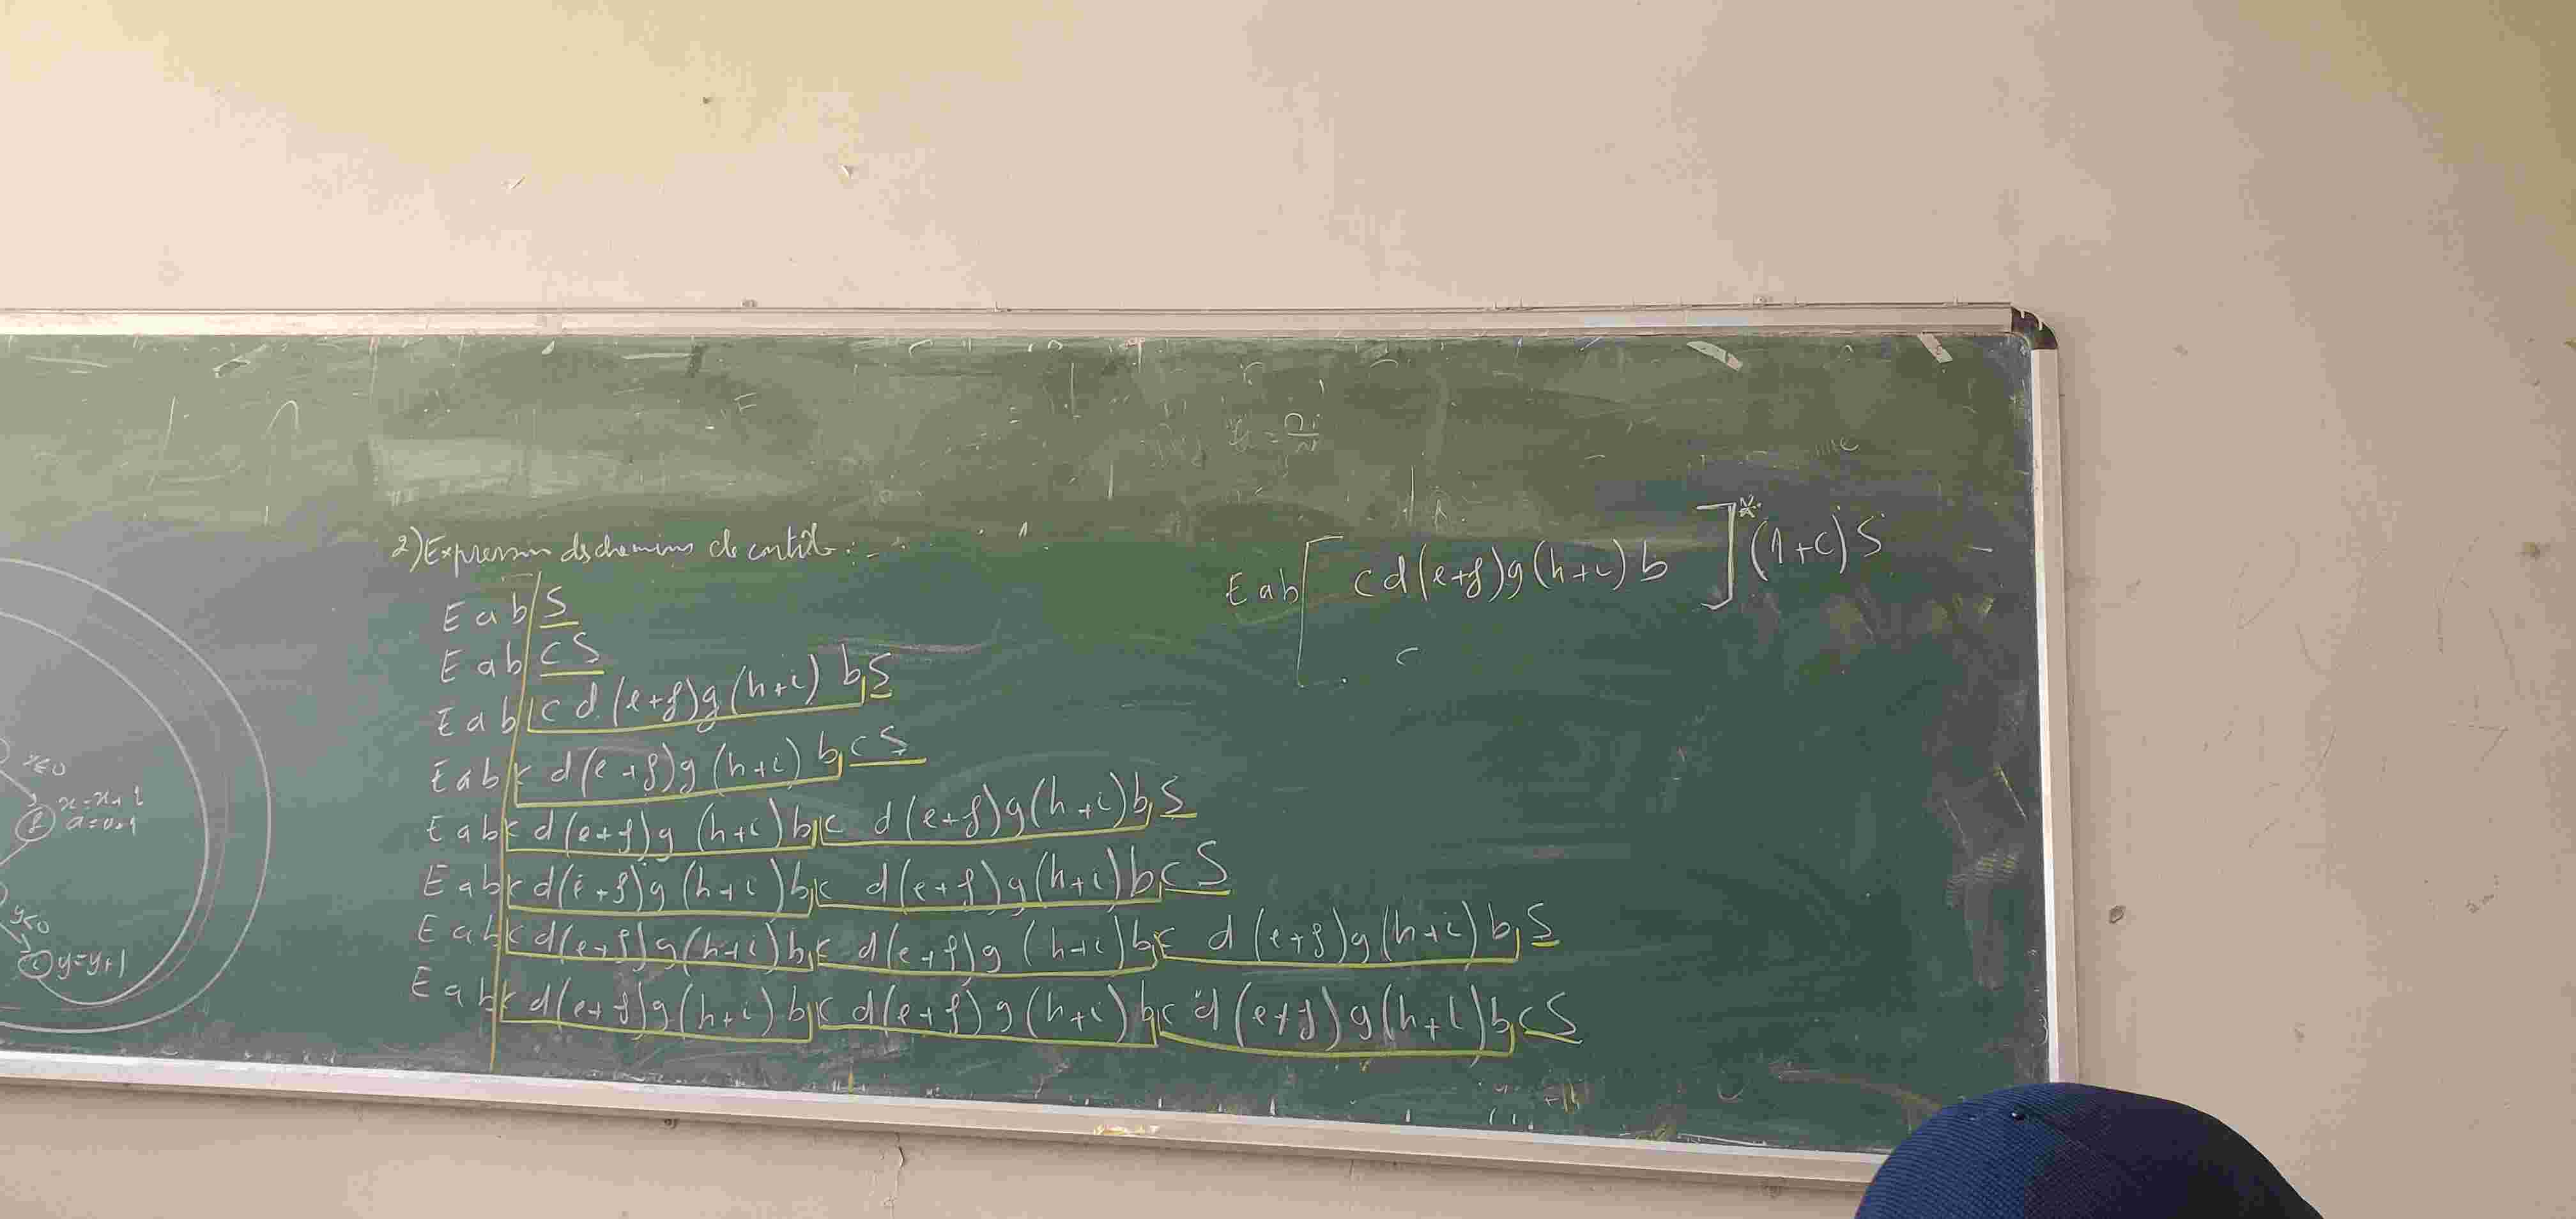 2) Expression des chemins de contrôle :
E a b S
E a b c S
E a b c d (e+f) g (h+i) b S
E a b c d (e+f) g (h+i) b c S
E a b c d (e+f) g (h+i) b c d (e+f) g (h+i) b S
E a b c d (e+f) g (h+i) b c d (e+f) g (h+i) b c S
E a b c d (e+f) g (h+i) b c d (e+f) g (h+i) b c d (e+f) g (h+i) b S
E a b c d (e+f) g (h+i) b c d (e+f) g (h+i) b c d (e+f) g (h+i) b c S
E a b [ c d (e+f) g (h+i) b ]* (1+c) S
c
x≤0
y<0
i y=y+1